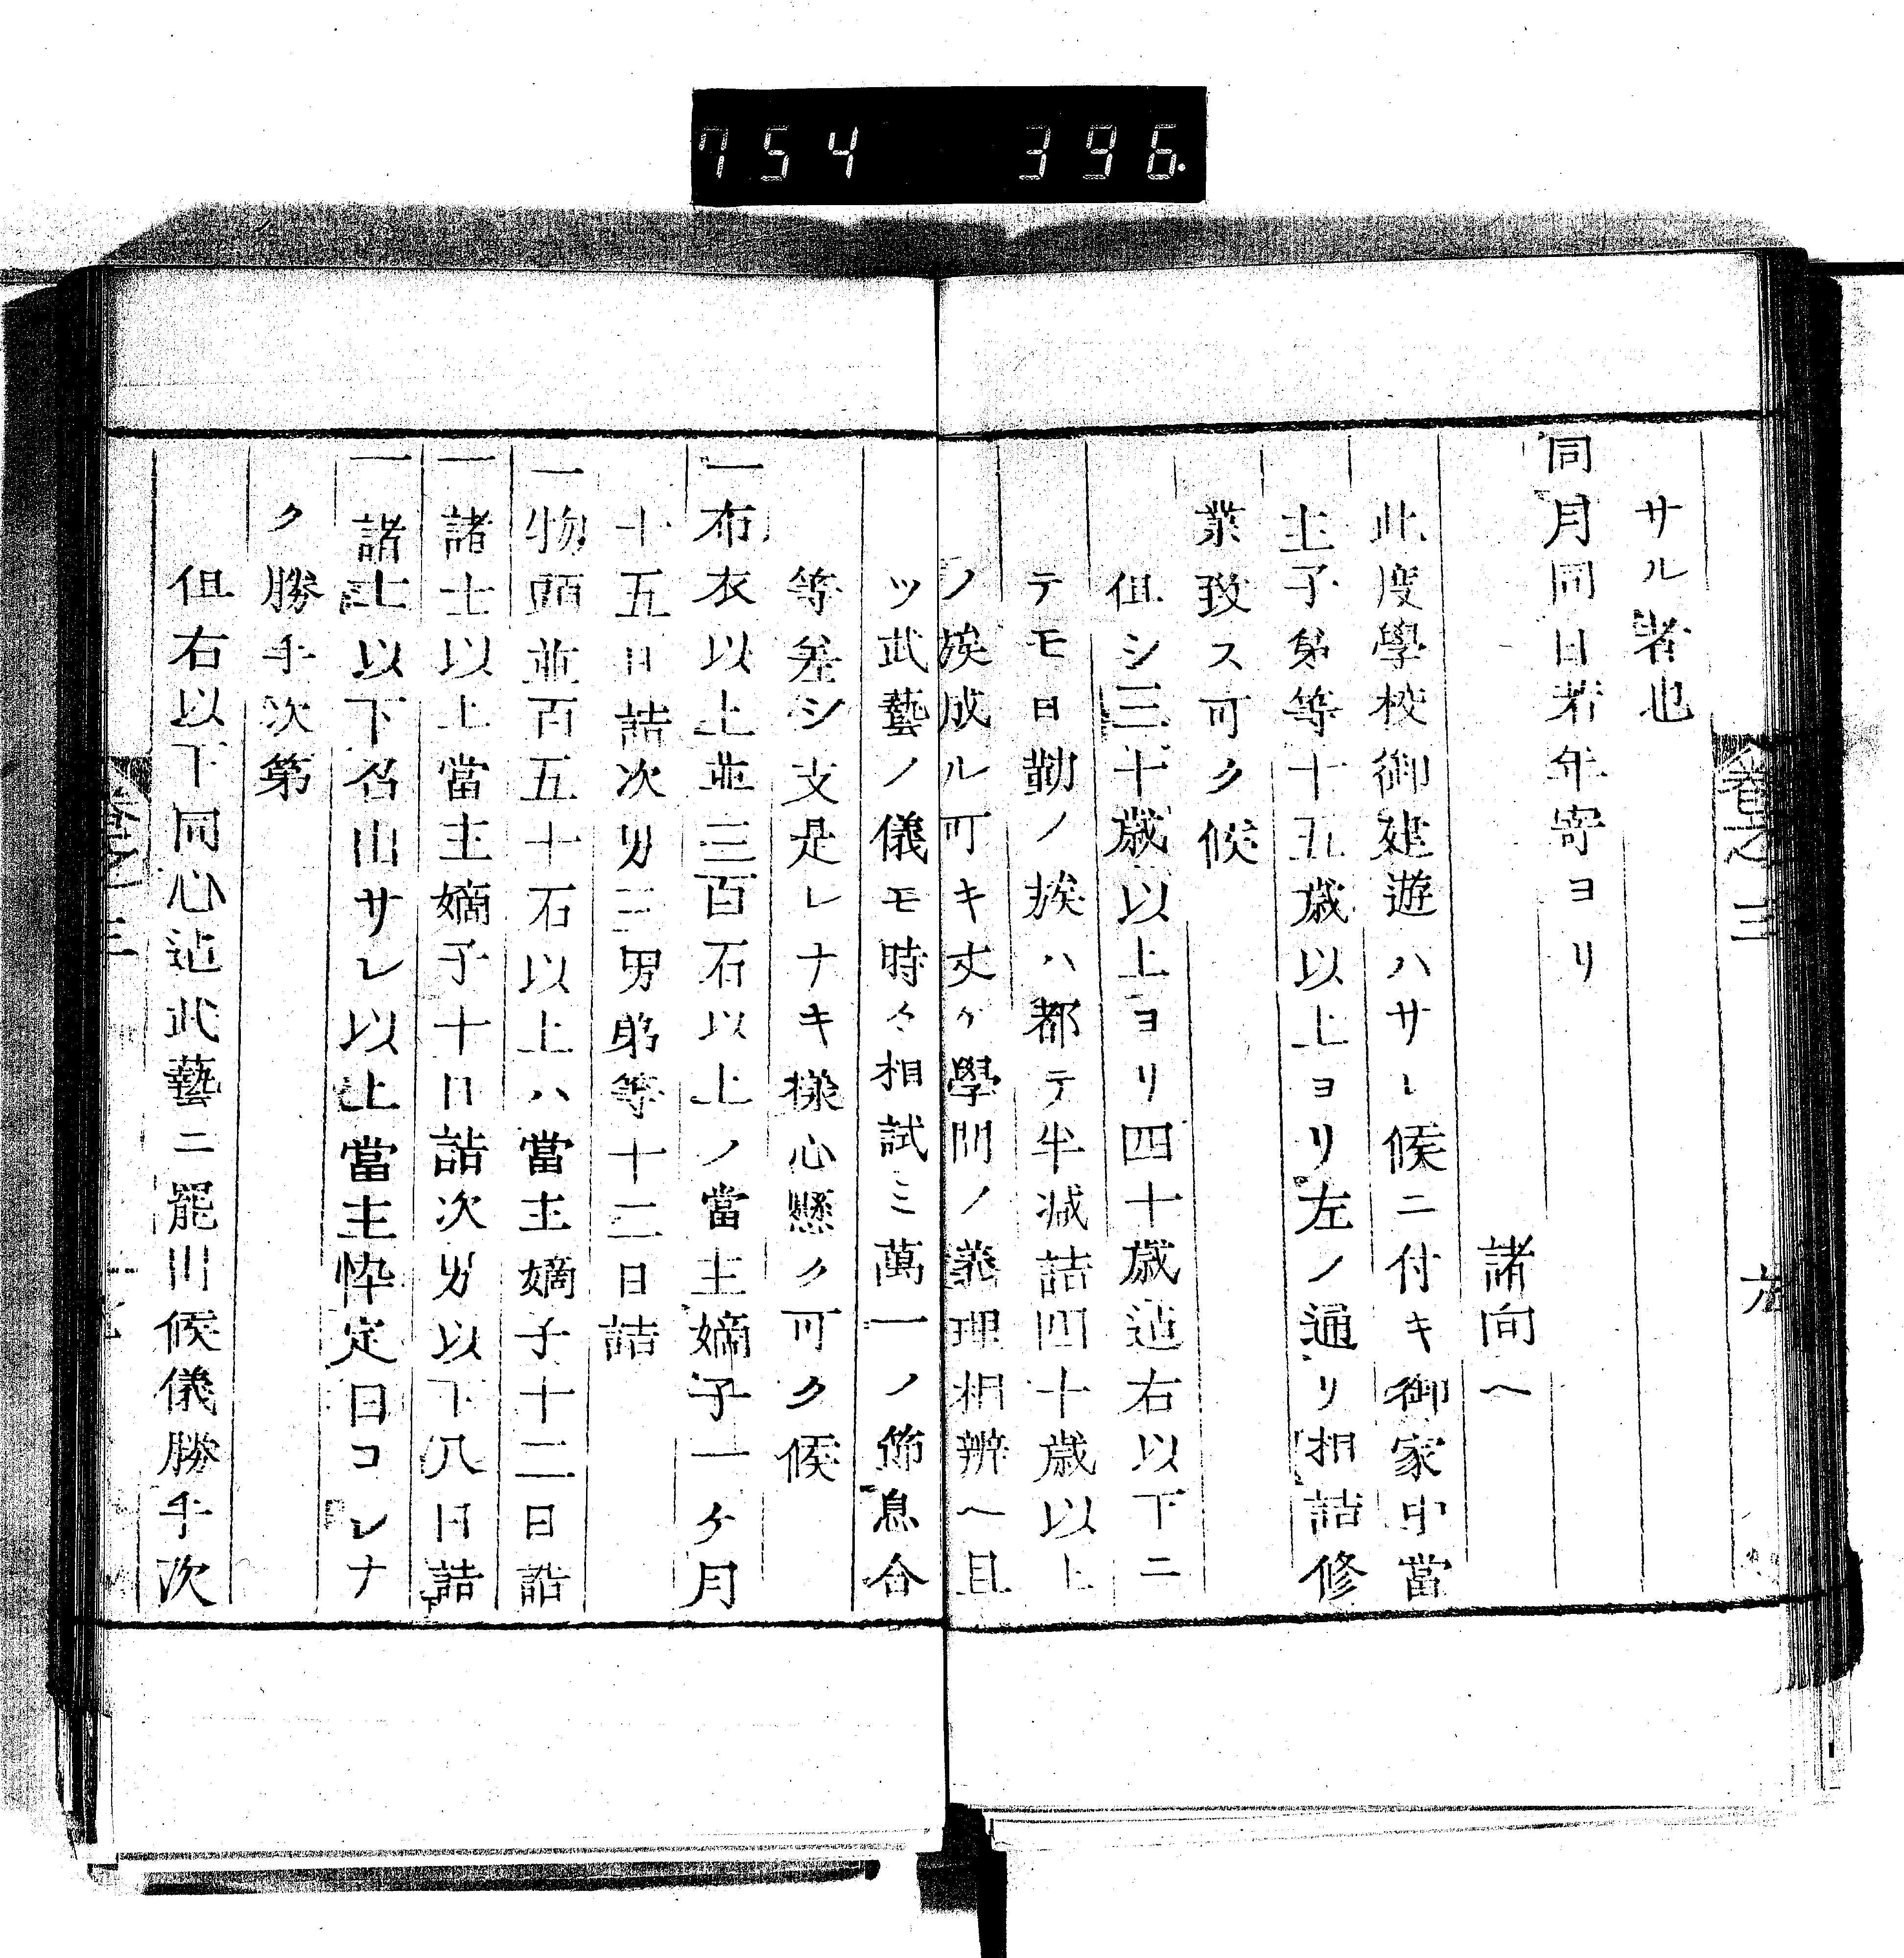 754 396.
卷之三
サル者也
同月同日若年寄ヨリ
諸向ヘ
此度學校御建遊ハサレ候ニ付キ御家中當
主子弟等十五歳以上ヨリ左ノ通リ相詰修
業致ス可ク候
但シ三十歳以上ヨリ四十歳迠右以下ニ
テモ日勤ノ族ハ都テ半減詰四十歳以上
ノ族成ル可キ丈ケ學問ノ義理相辨ヘ且
ツ武藝ノ儀モ時々相試ミ萬一ノ節息合
等差シ支是レナキ樣心懸ク可ク候
一布衣以上並三百石以上ノ當主嫡子一ケ月
十五日詰次男三男弟等十二日詰
一物頭並百五十石以上ハ當主嫡子十二日詰
一諸士以上當主嫡子十日詰次男以下八日詰
一諸士以下召出サレ以上當主忰定日コレナ
ク勝手次第
但右以下同心迠武藝ニ罷出候儀勝手次